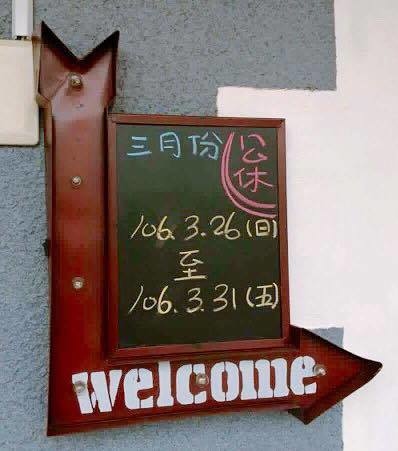 三月份 公休
106.3.26(日)
至
106.3.31(五)
welcome